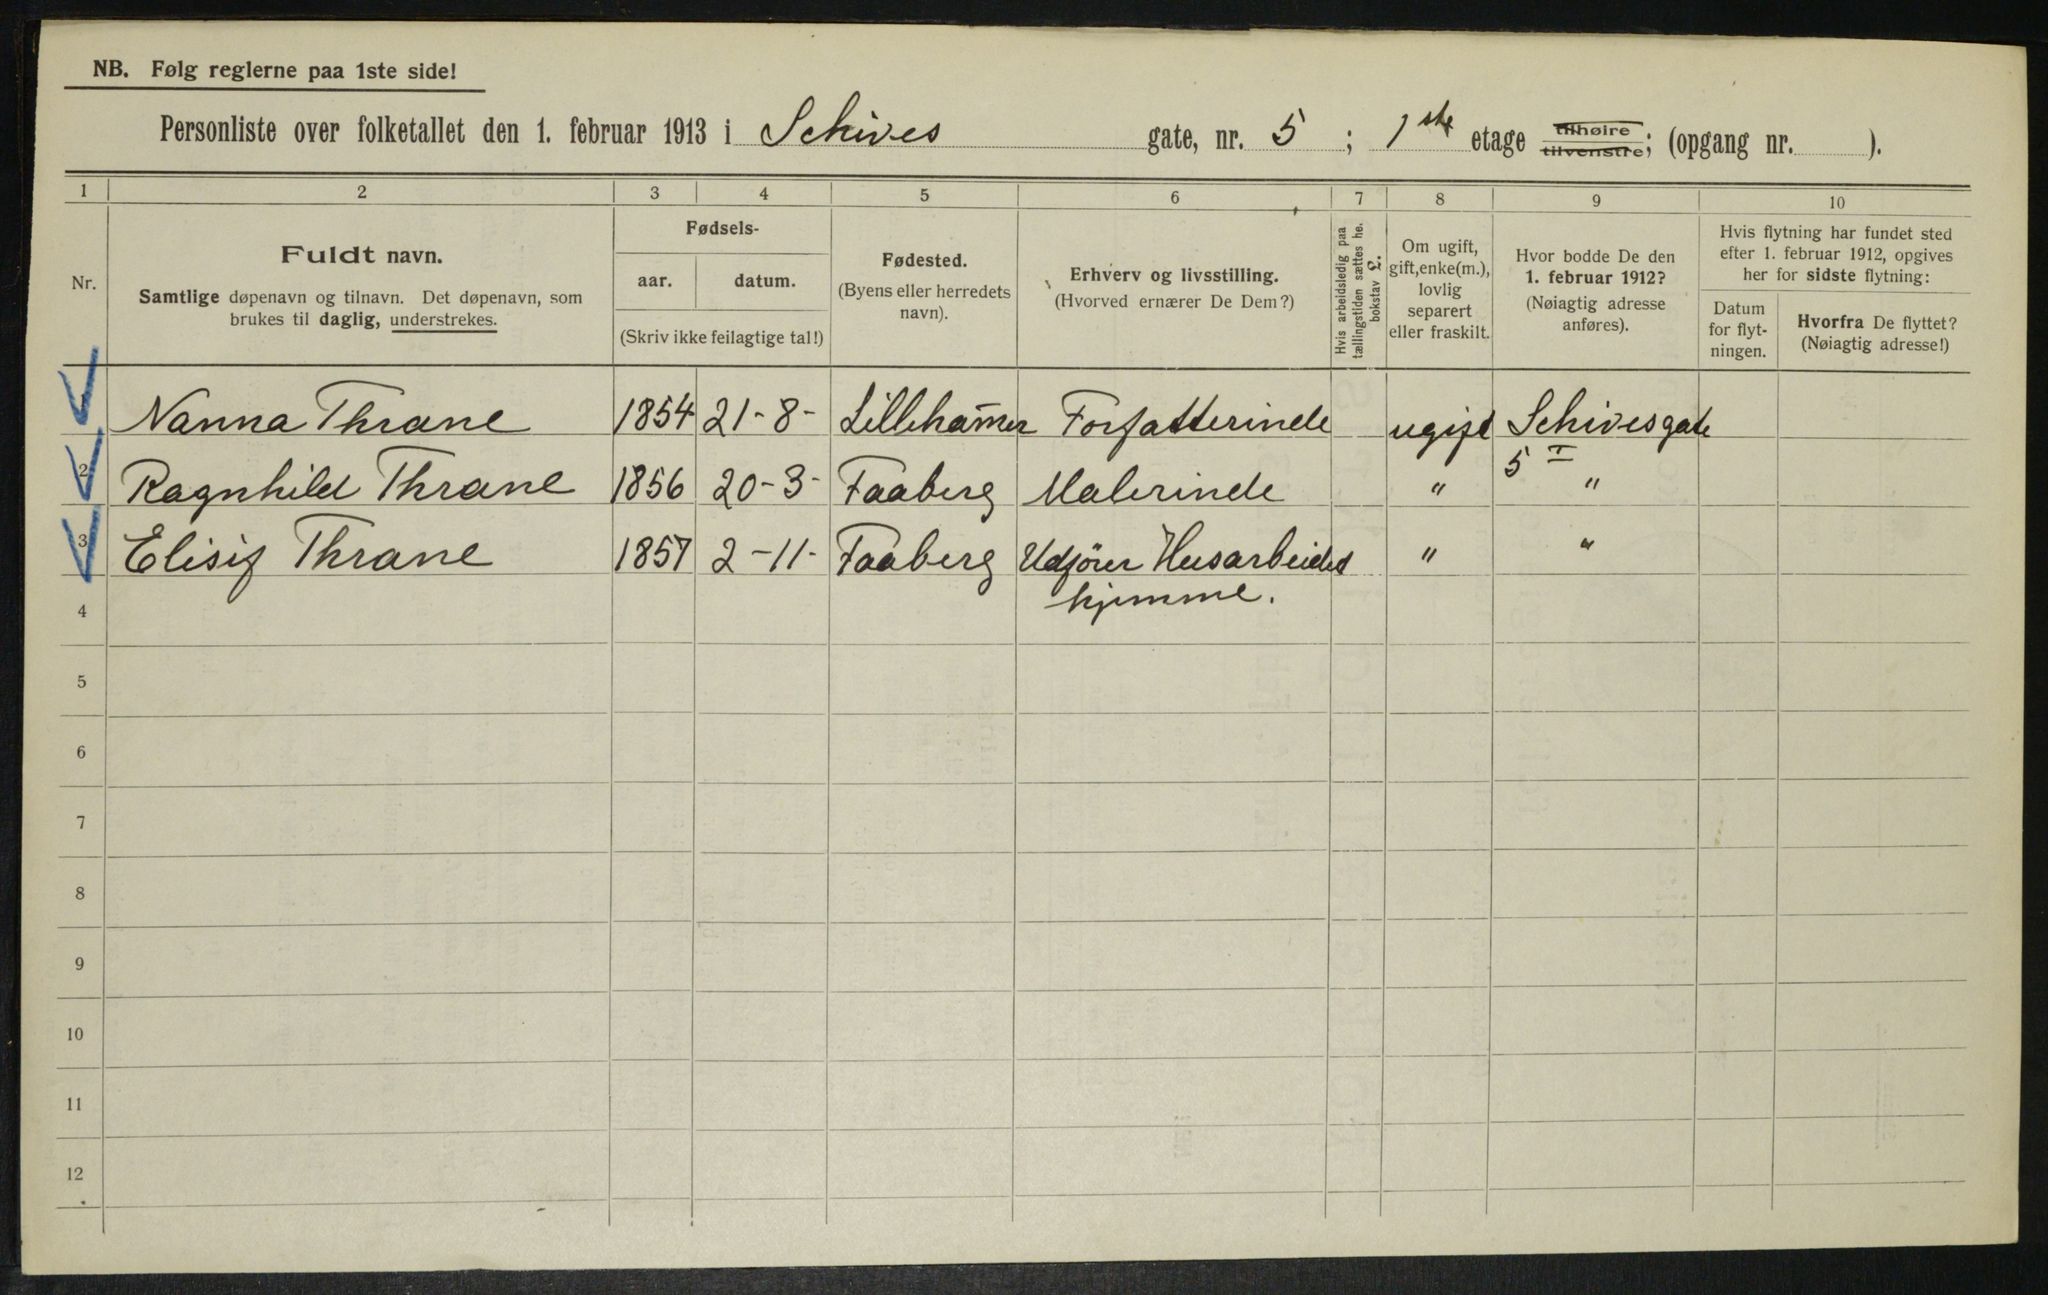 NB. Følg reglerne paa 1ste side!
Personliste over folketallet den 1. februar 1913 i Schives gate, nr. 5 ; 1ste etage tilhøire tilvenstre; (opgang nr. ).
1 2 3 4 5 6 7 8 9 10
Nr.
Fuldt navn.
Samtlige døpenavn og tilnavn. Det døpenavn, som
brukes til daglig, understrekes.
Fødsels-
aar. datum.
(Skriv ikke feilagtige tal!)
Fødested.
(Byens eller herredets
navn).
Erhverv og livsstilling.
(Hvorved ernærer De Dem?)
Hvis arbeidsledig paa
tællingstiden sættes he.
bokstav L.
Om ugift,
gift, enke(m.),
lovlig
separert
eller fraskilt.
Hvor bodde De den
1. februar 1912?
(Nøiagtig adresse
anføres).
Hvis flytning har fundet sted
efter 1. februar 1912, opgives
her for sidste flytning:
Datum
for flyt-
ningen.
Hvorfra De flyttet?
(Nøiagtig adresse!)
Nanna Thrane 1854 21-8- Lillehamer Forfatterinde ugift Schivesgate
5 I
2 Ragnhild Thrane 1856 20-3- Faaberg Malerinde " "
3 Elisif Thrane 1857 2-11- Faaberg Udfører Husarbeidet " "
hjemme.
4
5
6
7
8
9
10
11
12